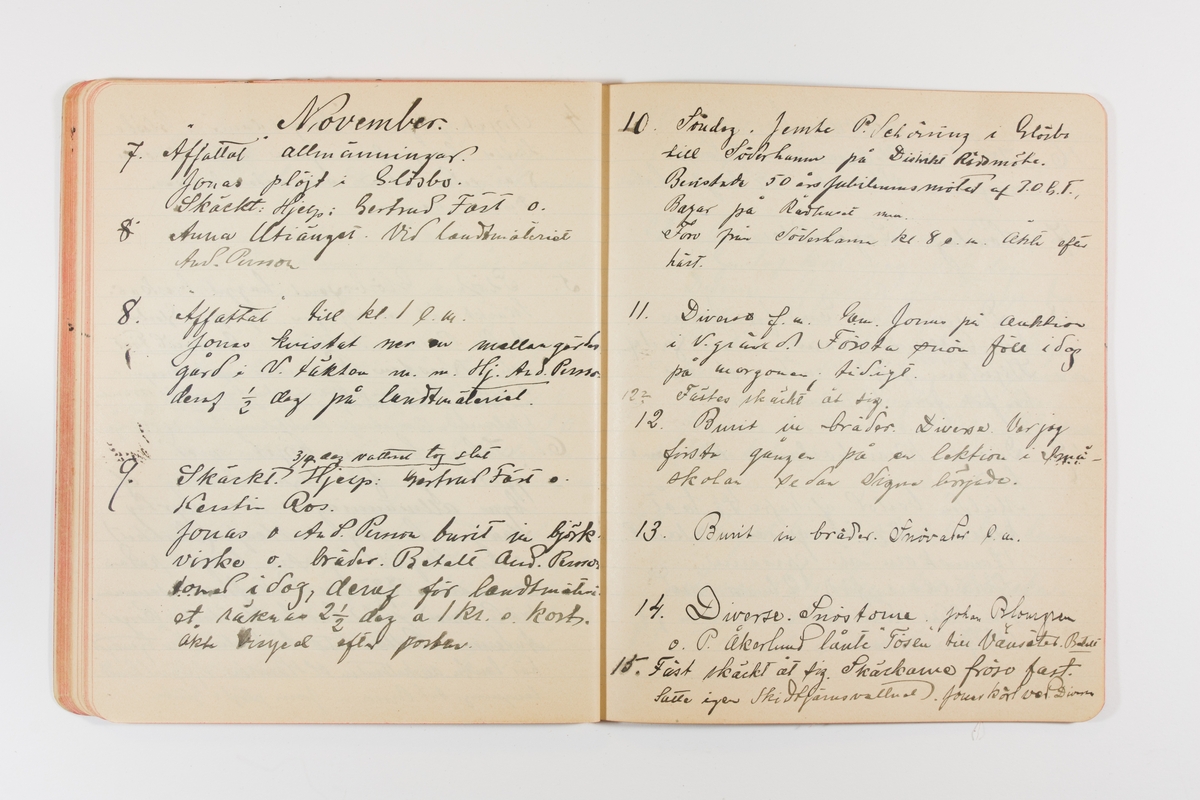 November.
7. "Affattat" allmänningar.
Jonas plöjt i Glösbo.
Skäckt: Hjelp: Gertrud Fäst o.
8 Anna Utiänget. Vid landtmäteriet
And. Persson
8. "Affattat" till kl. 1 e.m.
Jonas kvistat ner en mellangärdes
gård i V. täkten m. m. Hj. And. Persso-
deraf ½ dag på landtmäteriet.
3 p. dag vattnet tog slut
9. Skäckt. Hjelp: Gertrud Fäst o.
Kerstin Ros.
Jonas o And. Persson burit in björk-
virke o. bräder. Betalt And. Persso.
i dag, deraf för landtmäteri-
et räknas 2½ dag a 1 kr. o. kost.
åkte efter posten.
10. Söndag. Jemte P. Schöning i Glösbo
till Söderhamn på Distrikt Rådsmöte.
Bevistade 50 årsjubileumsmötet af I.O.G.T.,
Bazar på Rådhuset mm.
Foro från Söderhamn kl 8 e.m. Åkte efter
häst.
11. Diverse f.m. Em. Jonas på auktion
i V. gränd. Första snön föll idag
på morgonen, tidigt.
12. Fästes skäckt åt sig.
12. Burit in bräder. Diverse. Var jag
första gången på en lektion i små-
skolan sedan Signe började.
13. Burit in bräder. Snöväder e.m.
14. Diverse. Snöstorm. John Blomgren
o. P. Åkerlund lånte Tösen till Vänsätet. Betalt
15. Fäst skäckt åt sig. Skäckarne fröso fast.
Satte igen Skidtjärnsvattnet. Jonas kört ved Diverse